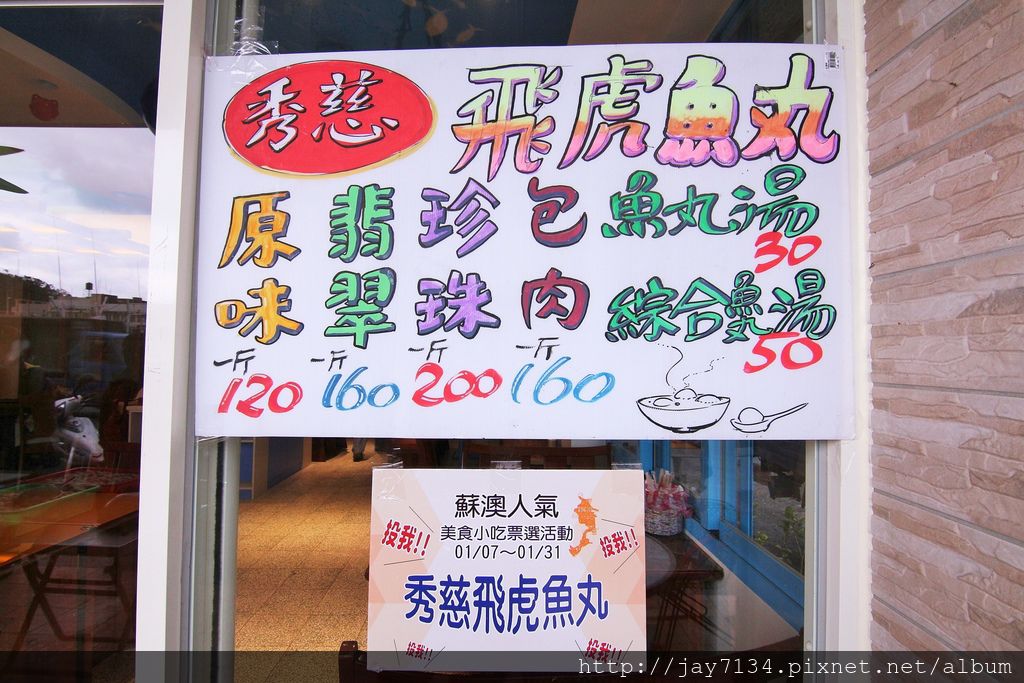 秀慈 飛虎魚丸
原味 一斤 120
翡翠 一斤 160
珍珠 一斤 200
包肉 一斤 160
魚丸湯 30
綜合魚丸湯 50
蘇澳人氣
美食小吃票選活動
01/07～01/31
投我!!
投我!!
秀慈飛虎魚丸
投我!!
投我!!
http://jay7134.pixnet.net/album